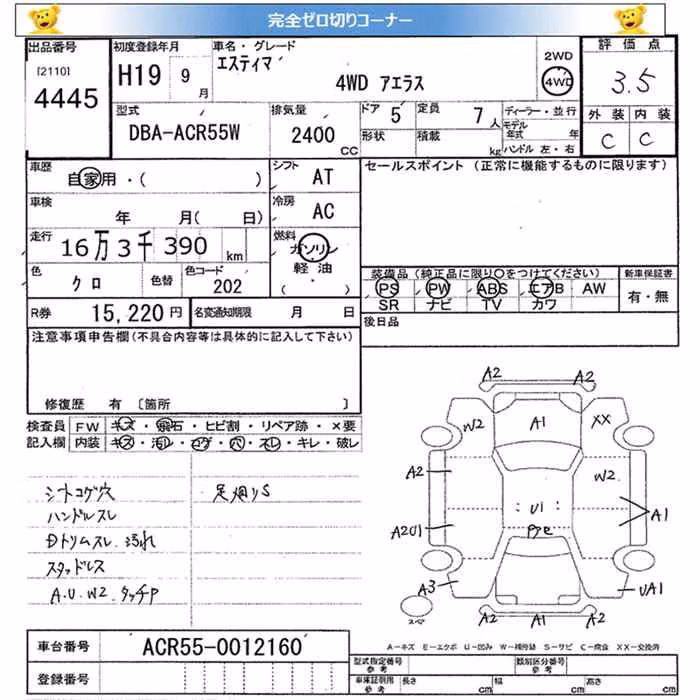 完全ゼロ切りコーナー
出品番号 初度登録年月 車名・グレード 評価点
[2110] H19 9 月 エスティマ 2WD
4445 4WD アエラス 4WD 3.5
型式 排気量 ドア 5 定員 7 人 ディーラー・並行 外装 内装
DBA-ACR55W 2400 CC 形状 積載 kg モデル年式 年 C C
ハンドル 左・右
車歴 自家用・( ) シフト AT セールスポイント (正常に機能するものに限ります)
車検 年 月( 日) 冷房 AC
走行 16万3千390 km 燃料 ガソリン
軽油
( )
色 クロ 色替 色コード 202 装備品 (純正品に限り○をつけてください) 新車保証書
PS PW ABS エアB AW 有・無
SR ナビ TV カワ
R券 15,220円 名変通知期限 月 日 後日品
注意事項申告欄(不具合内容等は具体的に記入して下さい)
修復歴 有 [箇所 ]
検査員 FW キズ・飛石・ヒビ割・リペア跡・×要
記入欄 内装 キズ・汚れ・コゲ・穴・スレ・キレ・破レ
シートコゲ穴 足廻りS
ハンドルスレ
Dトリムスレ 汚れ
スタッドレス
A.U.W2.タッチP
A2 A2
W2 A1 XX
A2 W2
U1 A1
A2U1
A3 UA1
スペア A2 A1 A2
A-キズ E-エクボ U-凹み W-補修跡 S-サビ C-腐食 XX-交換済
車台番号 ACR55-0012160
登録番号
型式指定番号 参考 類別区分番号 参考
車庫証明用 参考 長さ cm 幅 cm 高さ cm